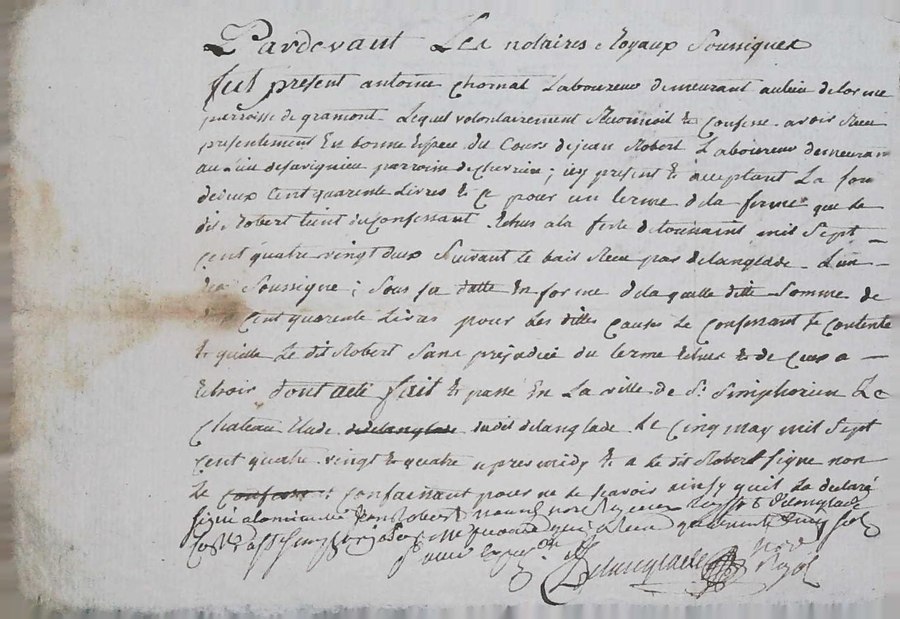 Pardevant Les notaires Royaux Soussignes
fut present antoine Chomat Laboureur demeurant au lieu delorme
parroisse de gramont Lequel volontairement Reconnoit & Confesse avoir Receu
presentement En bonne Espece du Cours de jean Robert Laboureur demeurant
au Lieu de savignieu parroisse de Chevrieu; icy present & acceptant La som
de deux Cent quarente Livres & Ce pour un terme dela ferme que Le
dit Robert tient du Confessant Echus ala feste de toussaints mil Sept
Cent quatre vingt deux Suivant Le bail Receu par delanglade L'un
des Soussigne; Sous sa datte En forme dela quelle ditte Somme de
Cent quarente Livres pour Les dittes Causes Le Confessant Se Contente
& quitte Le dit Robert Sans prejudice du terme Echus & de Ceux a
Echoir dont acte fait & passé En La ville de St Simphorien Le
Chateau Etude dedelanglade dudit delanglade Le Cinq may mil Sept
Cent quatre vingt & quatre apres midy & a Le dit Robert signe non
Le Confess Confaissant pour ne Le Scavoir ainsy quil La declaré
signé alaminute jean Robert
Delanglade
nore
Royal